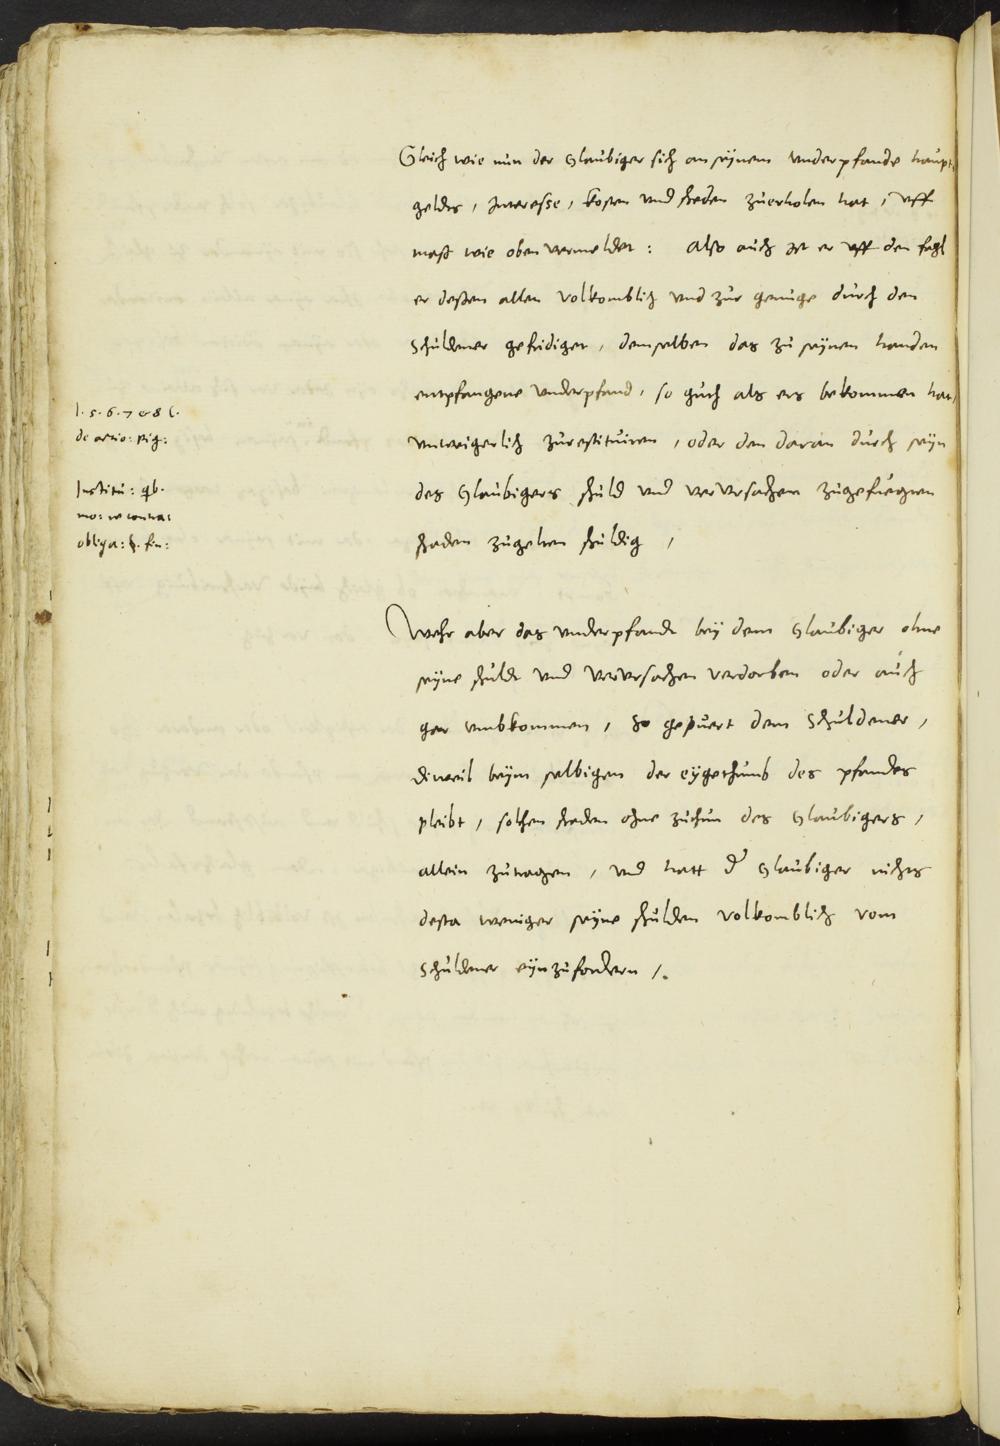 Gleich wie nun der Glaubiger sich an seÿnem vnderpfande haupt,
geldes, Interesse, kosten vnd schaden zuerholen hat, vff
maß wie oben vermeldet: Also auch ist er vff den fahl
er deßen allen volkomblich vnd zur genuge durch den
Schuldener gefridiget, demselben das zu seÿnen handen
entpfangene vnderpfand, so guth als ers bekommen hat,
vnweigerlich zurestituiren, oder den daran durch seÿn
des Glaubigers schuld vnd vervrsachen zugefuegten
schaden zugelten schuldig,
l. 5. 6. 7 et 8 C.
de actio: pig:
Institu: qib.
mo: re contra:
obliga: §. fin:
Wehr aber das vnderpfandt beÿ dem Glaubiger ohne
seÿne schuldt vnd vervrsachen verdorben oder auch
gar vmbkommen, So gepuert dem Schuldener,
dieweil beÿm selbigen der eÿgethumb des pfandes
pleibt, solchen schaden ohne zuthun des Glaubigers,
allein zutragen, vnd hatt der Glaubiger nichts
desta weniger seÿne schulden volkomblich vom
Schuldener eÿnzufordern /.